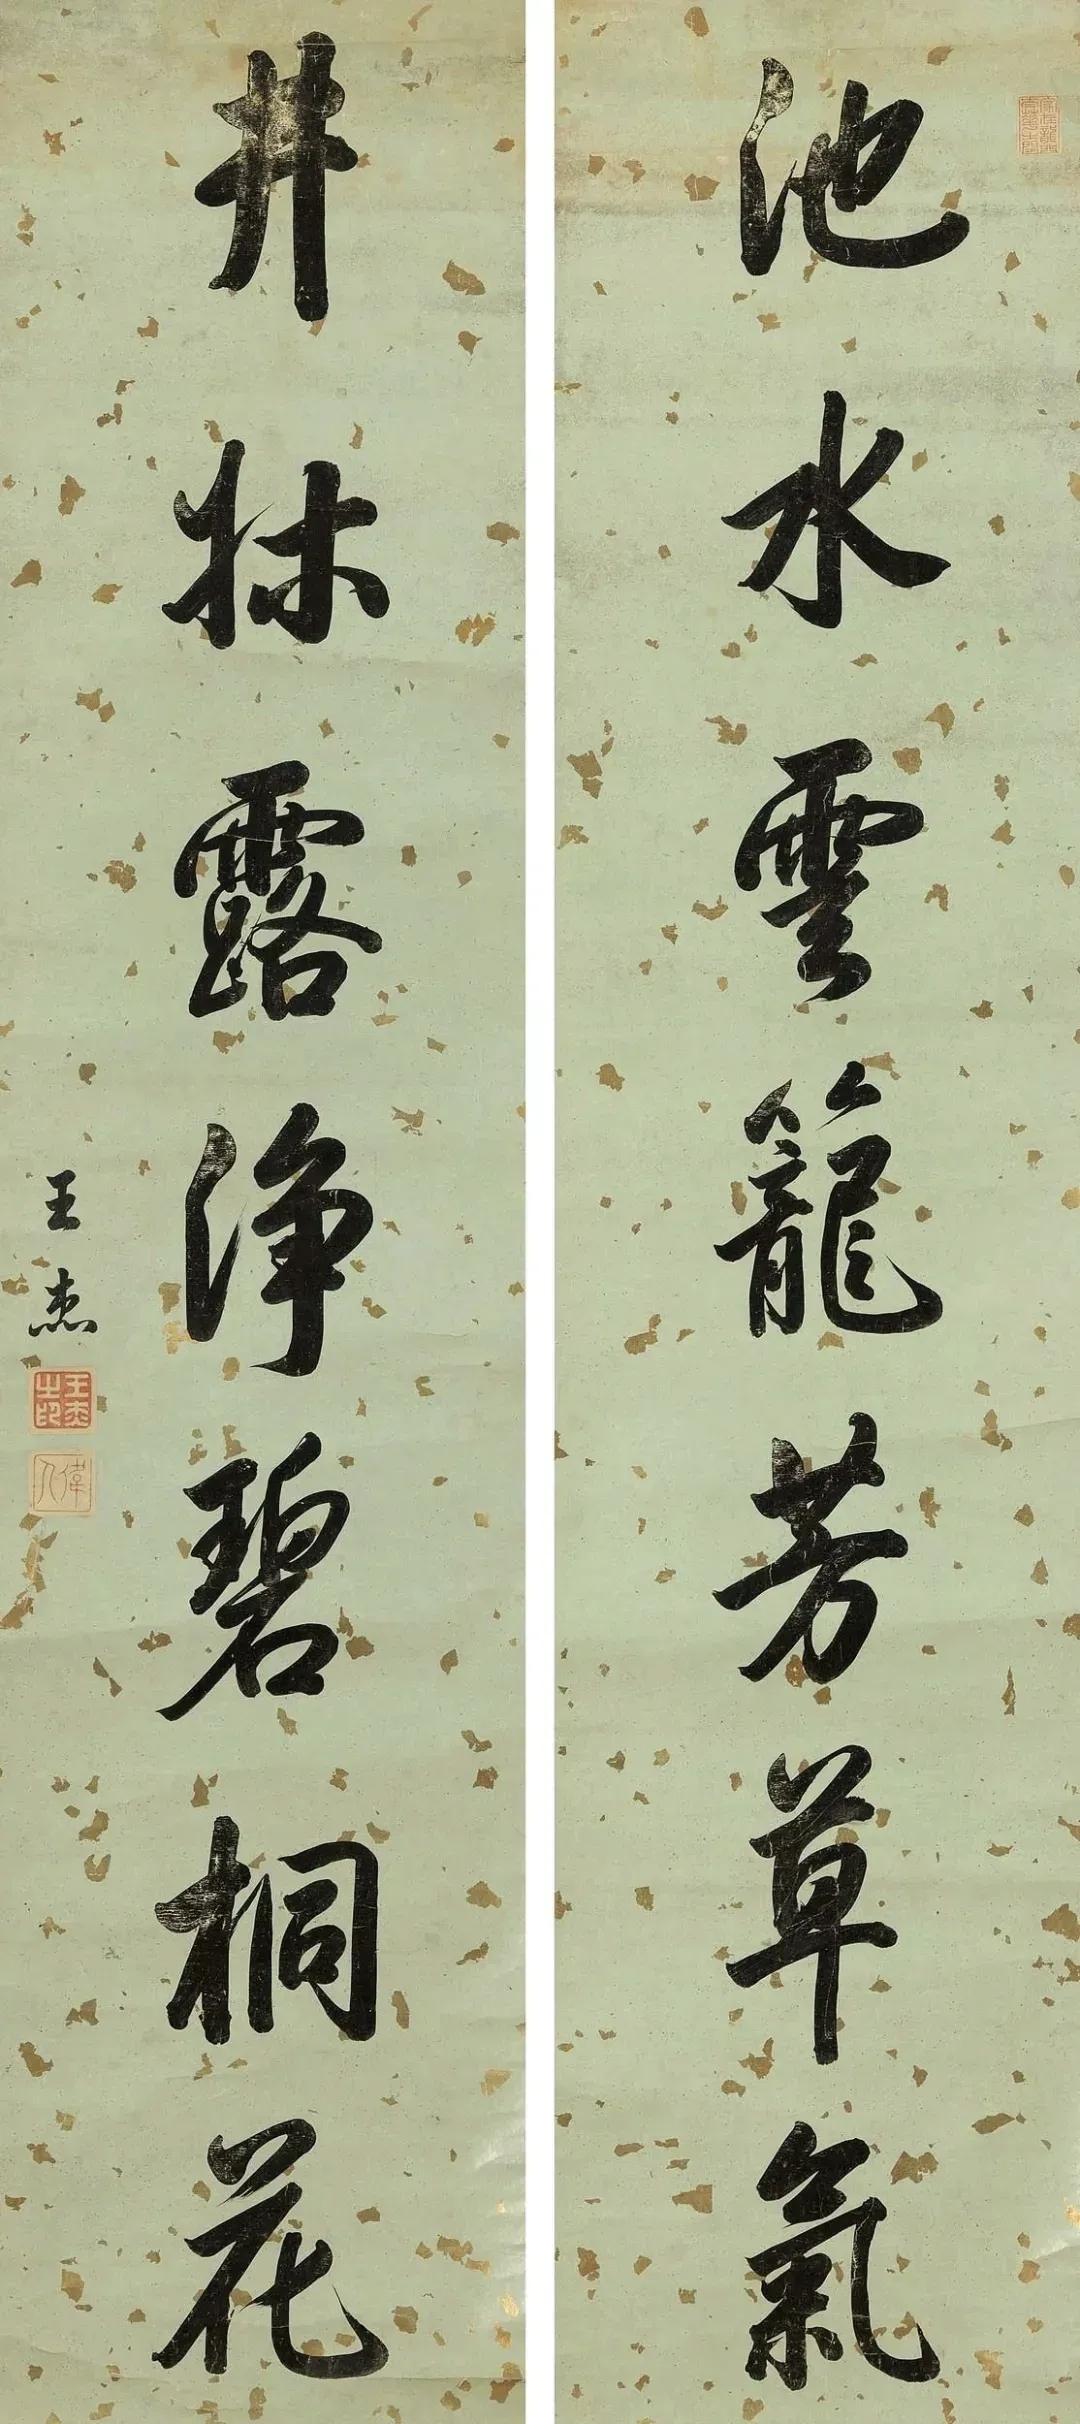 池水雲籠芳草氣
井牀露淨碧桐花
王杰
王杰之印
偉人